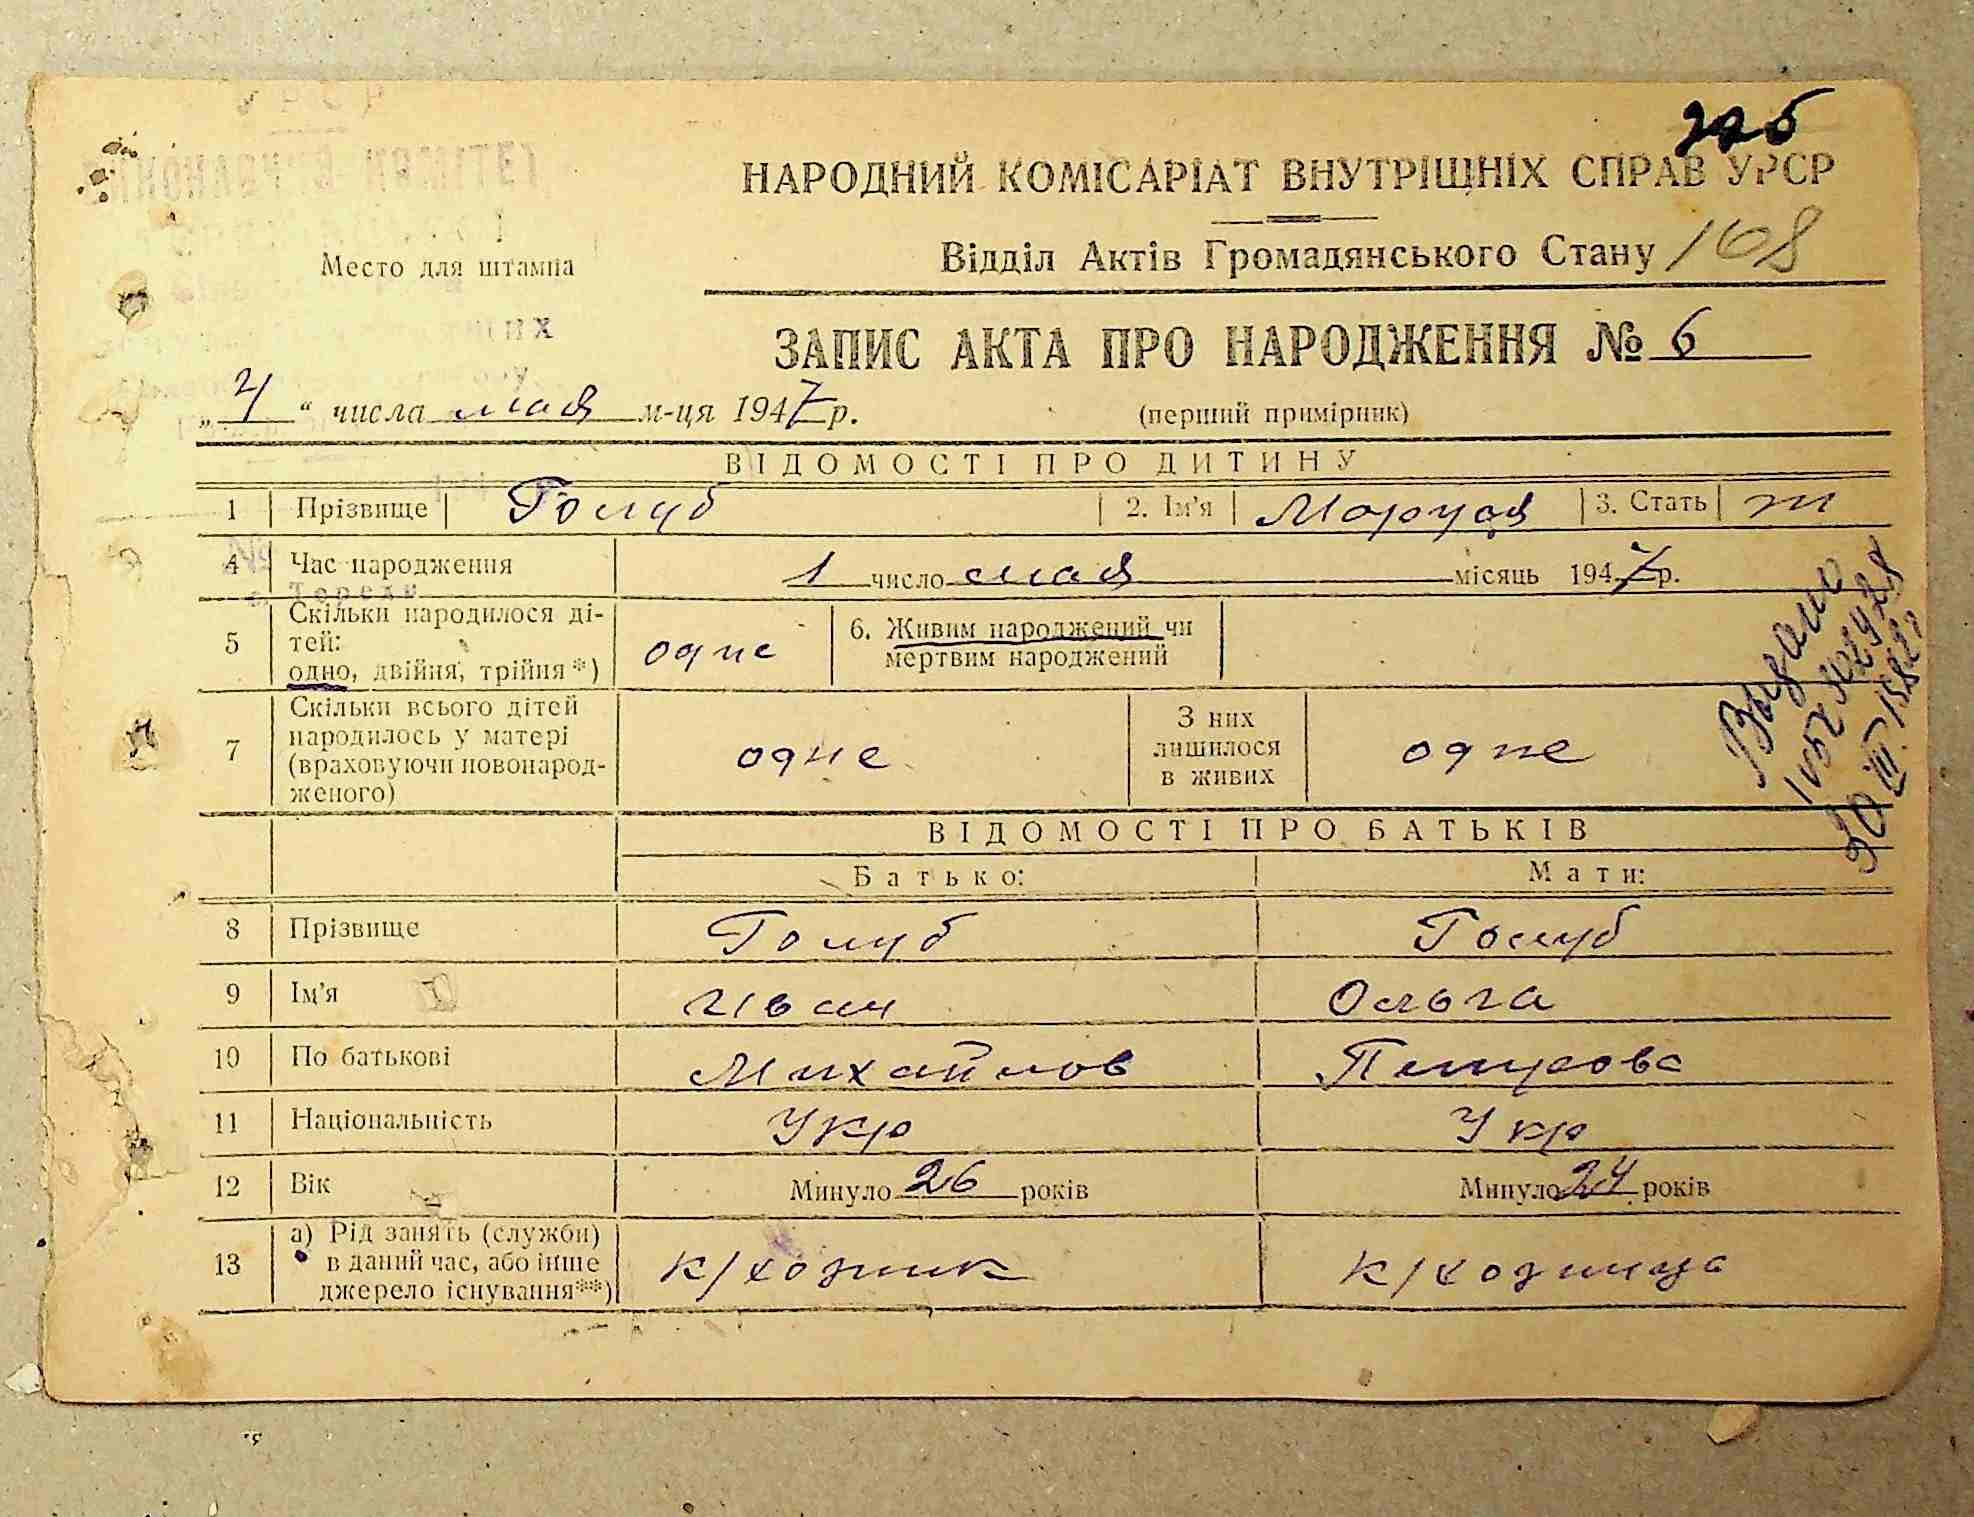 226
НАРОДНИЙ КОМІСАРІАТ ВНУТРІШНІХ СПРАВ УРСР
Відділ Актів Громадянського Стану 108
Место для штампа
ЗАПИС АКТА ПРО НАРОДЖЕННЯ № 6
„ 4 “ числа мая м-ця 1947 р. (перший примірник)
ВІДОМОСТІ ПРО ДИТИНУ
1 Прізвище Голуб 2. Ім'я Маруся 3. Стать ж
4 Час народження 1 число мая місяць 1947 р.
5 Скільки народилося ді-
тей:
одно, двійня, трійня*) одне 6. Живим народжений чи
мертвим народжений
7 Скільки всього дітей
народилось у матері
(враховуючи новонарод-
женого) одне З них
лишилося
в живих одне
Видано
ВІДОМОСТІ ПРО БАТЬКІВ
Батько: Мати:
8 Прізвище Голуб Голуб
9 Ім'я Иван Ольга
10 По батькові Михайлов
11 Національність Укр Укр
12 Вік Минуло 26 років Минуло 24 років
13 а) Рід занять (служби)
в даний час, або інше
джерело існування**) к/хозник к/хозница